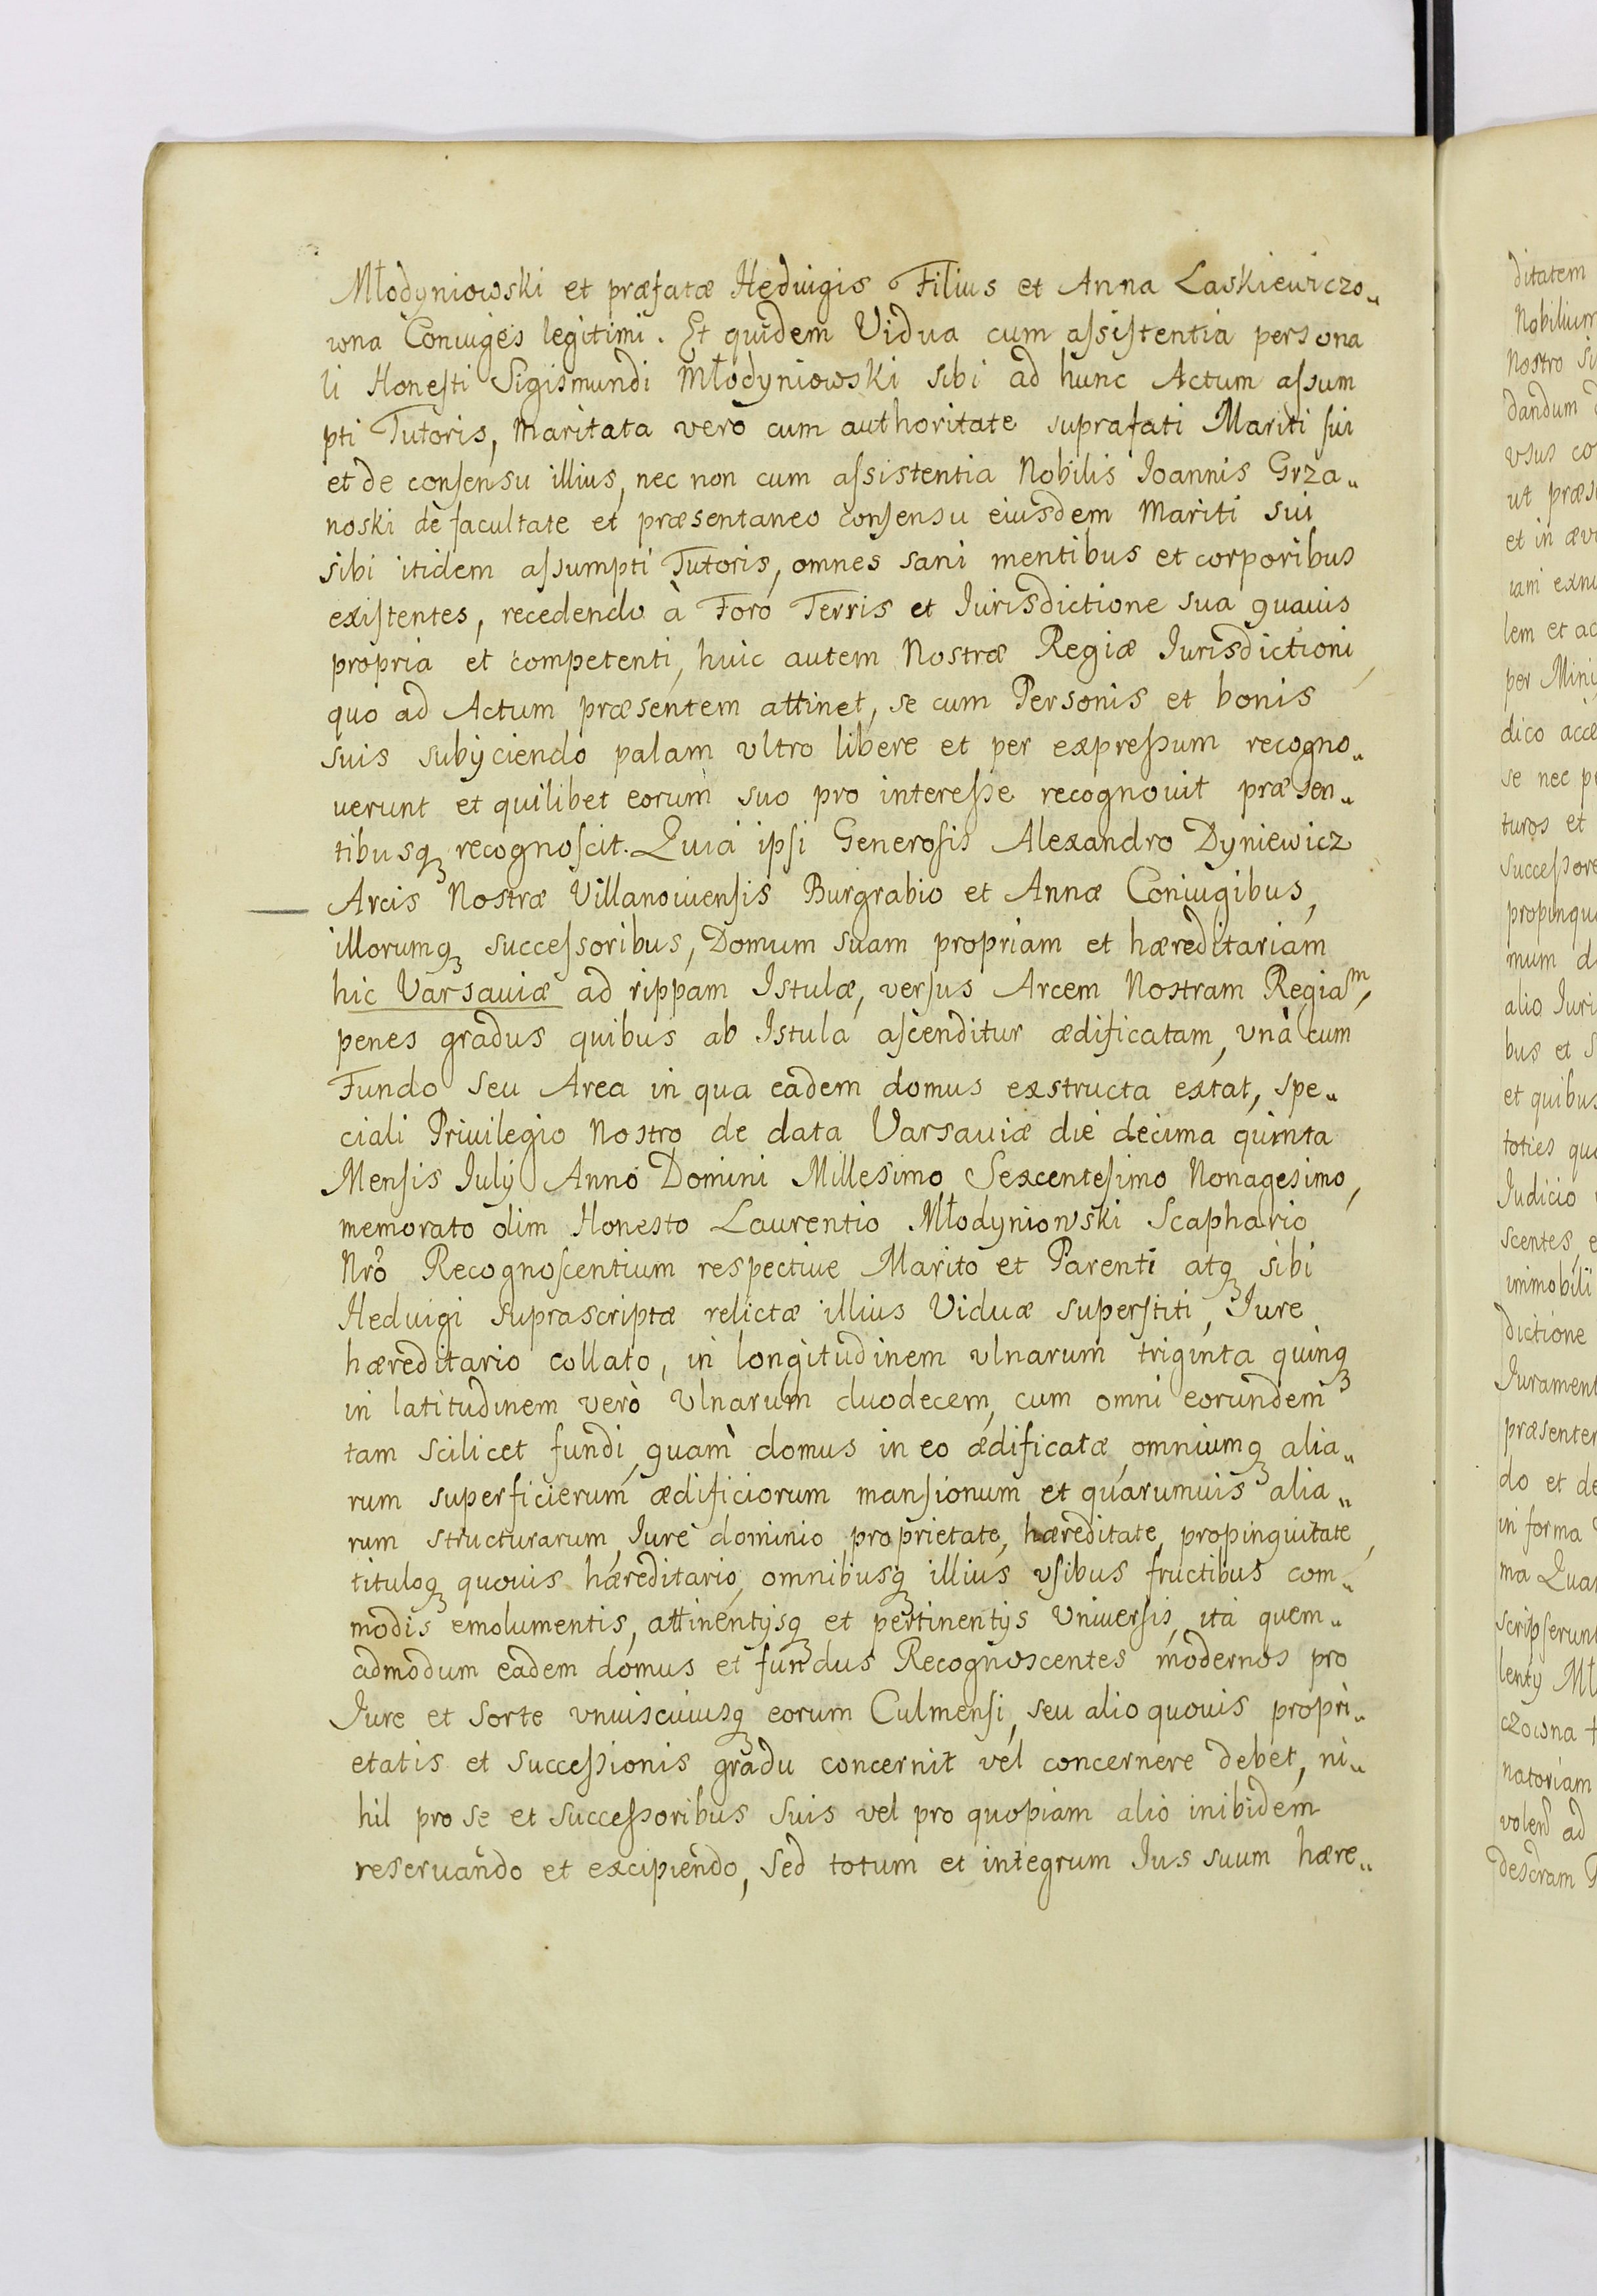 Młodyniowski et præfatæ Hedvigis Filius et Anna Laskiewiczo„
wna Coniuges legitimi. Et quidem Vidua cum aſsiſtentia persona
li Honeſti Sigismundi Młodyniowski sibi ad hunc Actum aſsum
pti Tutoris, Maritata verò cum authoritate suprafati Mariti ſui
et de conſensu illius, nec non cum aſsistentia Nobilis Ioannis Grza„
noski de facultate et præsentaneo conſensu eiusdem Mariti sui
sibi itidem aſsumpti Tutoris, omnes sani mentibus et corporibus
exiſtentes, recedendo à Foro Terris et Iurisdictione sua quavis
propria et competenti, huic autem Nostræ Regiæ Iurisdictioni,
quo ad Actum præsentem attinet, se cum Personis et bonis
suis subÿciendo palam vltro libere et per expreſsum recogno„
uerunt et quilibet eorum suo pro intereſse recognouit præsen„
tibusqȝ recognoſcit. Quia ipſi Generoſis Alexandro Dyniewicz
Arcis Nostræ Villanouiensis Burgrabio et Annæ Coniugibus,
illorumqȝ succeſsoribus, Domum suam propriam et hæreditariam
hic Varsaviæ ad rippam Istulæ, verſus Arcem Nostram Regiaᵐ,
penes gradus quibus ab Istula aſcenditur ædificatam, vnà cum
Fundo seu Area in qua eadem domus exstructa extat, spe„
ciali Privilegio Nostro de data Varsaviæ die decima quinta
Menſis Iulÿ Anno Domini Millesimo Sexcenteſimo Nonagesimo,
memorato olim Honesto Laurentio Młodyniowski Scaphario
Nrõ Recognoſcentium respective Marito et Parenti atqȝ sibi
Hedvigi suprascriptæ relictæ illius Viduæ superſtiti, Iure
hæreditario collato, in longitudinem vlnarum triginta quinqȝ
in latitudinem verò vlnarum duodecem, cum omni eorundem
tam scilicet fundi, quam domus in eo ædificatæ, omniumqȝ alia„
rum superficierum ædificiorum manſionum et quarumuis alia„
rum structurarum, Iure dominio, proprietate, hæreditate, propinquitate,
tituloqȝ quovis hæreditario, omnibusqȝ illius vſibus fructibus com„
modis emolumentis, attinentÿsqȝ et pertinentÿs Vniuerſis, ita quem„
admodum eadem domus et fundus Recognoscentes modernos pro
Iure et Sorte vniuscuiusqȝ eorum Culmensi, seu alio quovis propri„
etatis et succeſsionis gradu concernit vel concernere debet, ni„
hil pro se et succeſsoribus suis vel pro quopiam alio inibidem
reservando et excipiendo, Sed totum et integrum Ius suum hære„
ditatem
Nobilium
Nostro
dandum
vsus
ut
et in
lem et
per
dico
se nec
turos et
mum
alio
bus et
et quibus
toties
Iudicio
scentes,
immobili
dictione
do et
in forma
ma
lentÿ
czowna
natoriam
ad